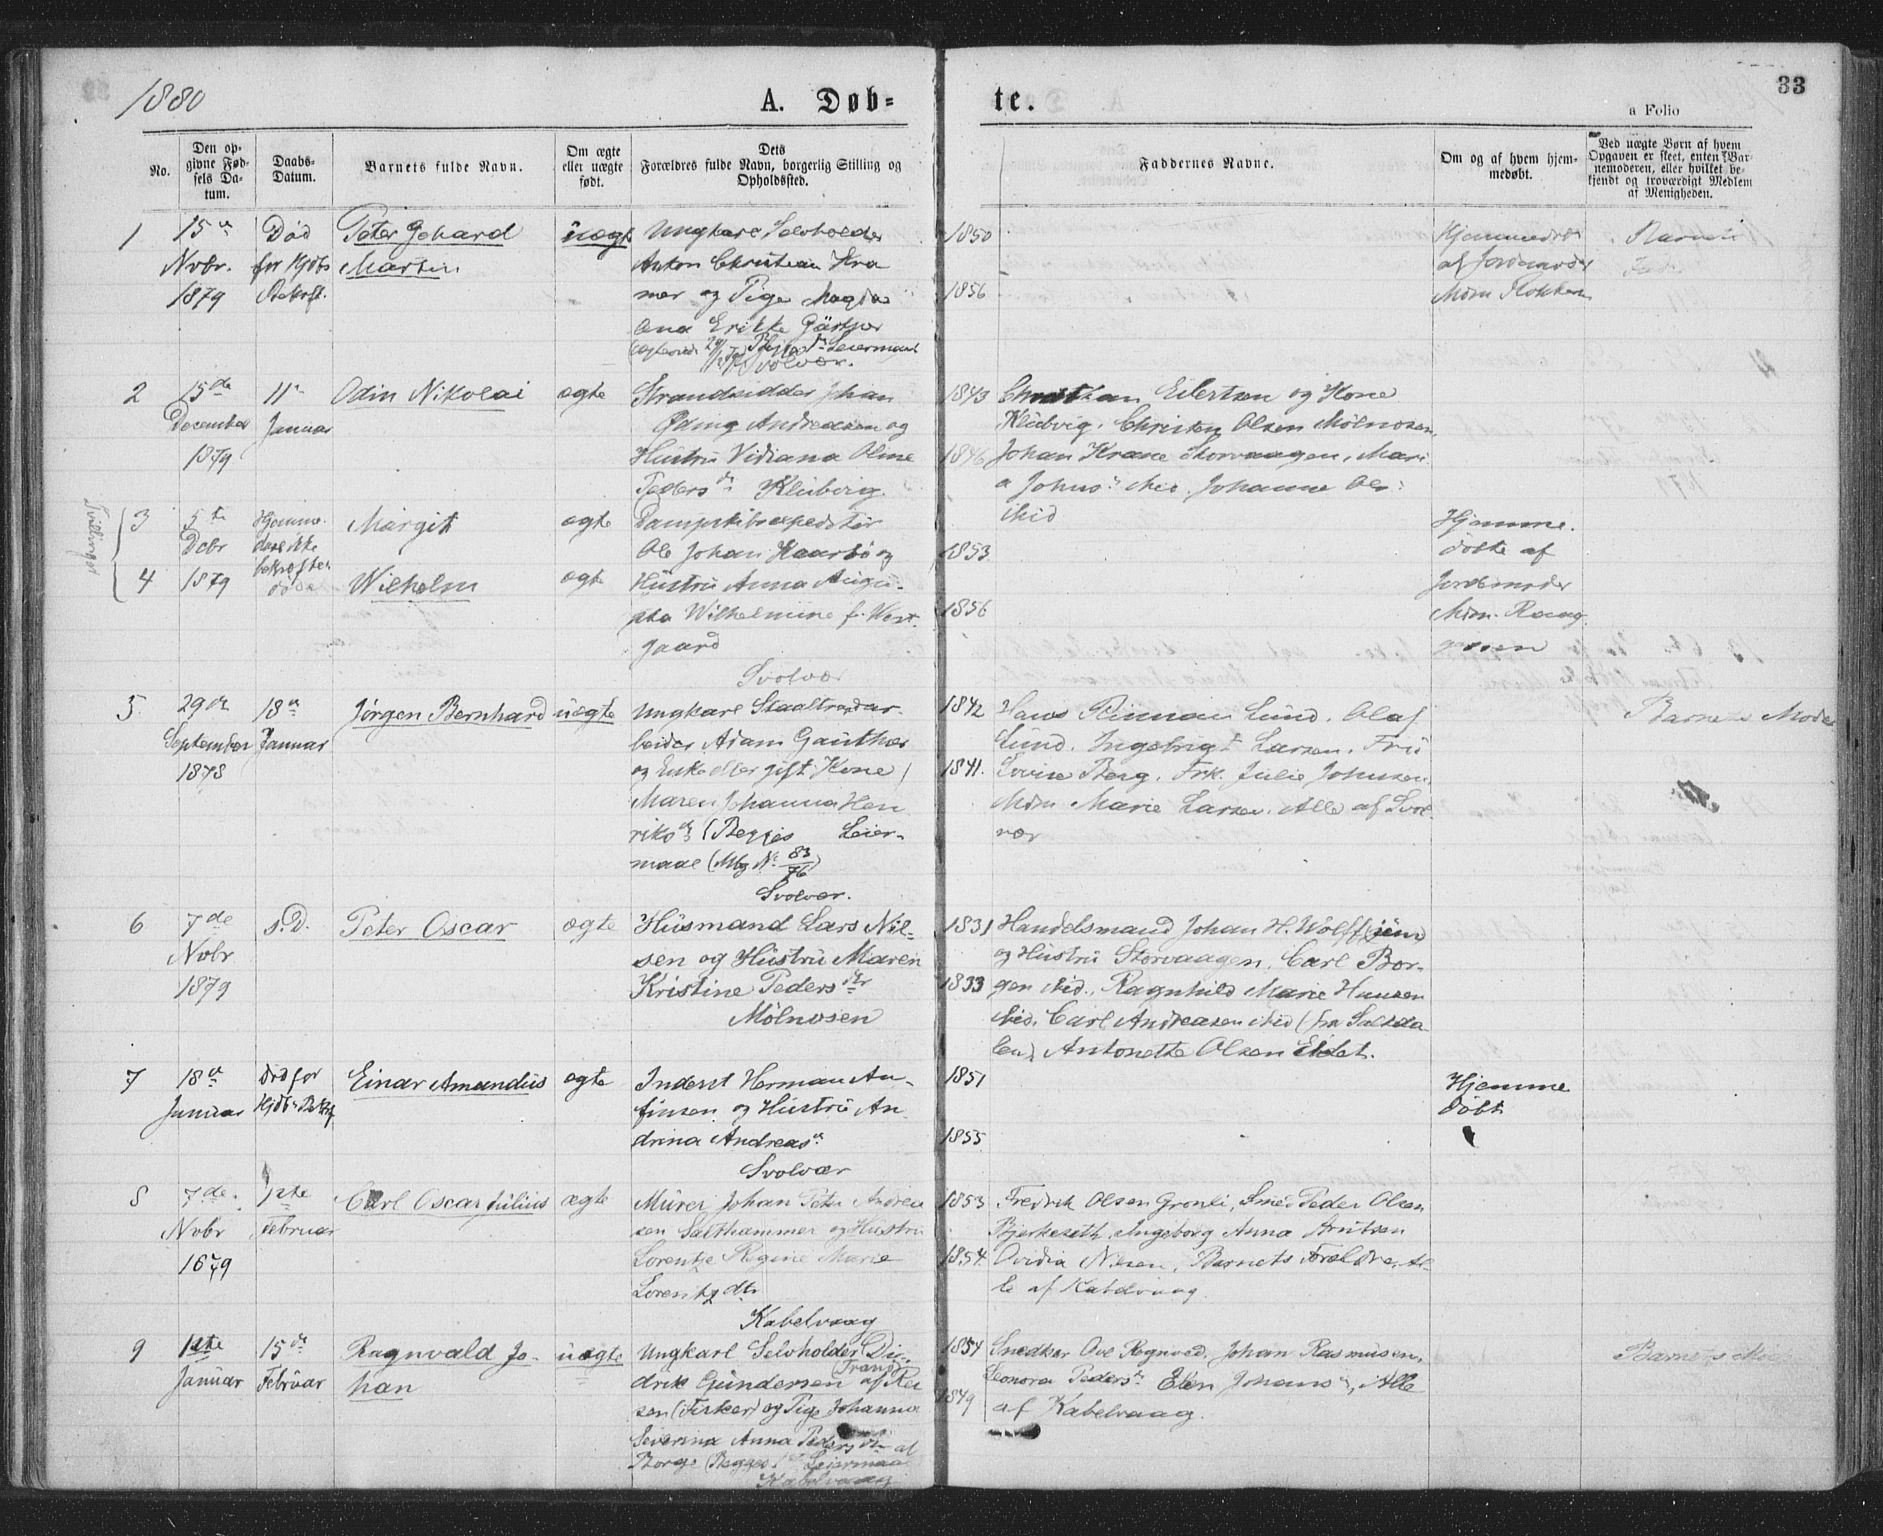 1880
A. Døb-
te.
33
a Folio
No.
Den op-
givne Fød-
sels Da-
tum.
Daabs-
Datum.
Barnets fulde Navn.
Om ægte
eller uægte
født.
Dets
Forældres fulde Navn, borgerlig Stilling og
Opholdssted.
Faddernes Navne.
Om og af hvem hjem-
medøbt.
Ved uægte Børn af hvem
Opgaven er skeet, enten Bar-
nemoderen, eller hvilket be-
kjendt og troværdigt Medlem
af Menigheden.
1
15de
Novbr.
1879
Død
for Hjdbs
Bekrft.
Peter Gehard
Martin
uægte
Ungkarl Selvholder
Anton Christian Kra
mer og Pige Magda
Ana Erikke
Svolvær.
1850
1856
af Jordmoder
Mdm
Barnets
2
15de
December
1879
11te
Januar
Odin Nikolai
ægte
Strandsidder Johan
Andreasen og
Hustru Vidiana Oline
Pedersdr Klubvig.
1843
1846
Christian Eilertsen og Kone
Klubvig. Olsen Mølnosen,
Johan Krane Storvaagen, Mari
a Johnsdr ibid. Johanne Ols:
ibid
Tvillinger
3
5te
Debr
Hjemme-
døbt ikke
bekræftet
døde
Margit
ægte
Dampskibsexpeditør
Ole Johan Kaarbø og
1853
Hjemme-
døbte af
Jordemoder
Mdm.
4
1879
Wilhelm
ægte
Hustru Anna Augu-
sta Wilhelmine f. West-
gaard
Svolvær
1856
5
29de
September
1878
18de
Januar
Jørgen Bernhard
uægte
Ungkarl Staaltraadar-
beider Adam Gauthar
og Enke eller gift Kone
Maren Johanna Hen
riksdr (Begges Leier-
maal (Mbg No. 83/76)
Svolvær.
1842
1841.
Hans Rinman Lund. Olaf
Lund. Ingebrigt Larsen. Fru
Lovise Berg. Frk. Julie Johnsen
Mdm Marie Larsen. Alle af Svol-
vær
Barnets Moder
6
7de
Novbr
1879
s.D.
Peter Oscar
ægte
Husmand Lars Nil-
sen og Hustru Maren
Kristine Pedersdtr
Mølnosen
1831
1833
Handelsmand Johan H. Wolff (jun)
og Hustru Storvaagen. Carl Bor-
gen ibid. Ragnhild Marie Hansen
ibid. Carl Andreasen ibid (fra Saltda
len). Antonette Olsen Eidet.
7
18de
Januar
død for
Hjdbs Bekrf
Einar Amandus
ægte
Inderst Herman An-
finsen og Hustru An
drina Andreasdr
Svolvær
1851
1855
Hjemme
døbt
8
7de
Novbr
1879
1ste
Februar
Carl Oscar Julius
ægte
Murer Johan Peter Andrea
sen Salthammer og Hustru
Lorentze Regine Marie
Lorentzdtr
Kabelvaag
1853
1854.
Fredrik Olsen Grønli, Smed Peder Olsen
Bjerkeseth, Ingeborg Anna Knutsen
Ovidia Nilsen, Barnets Forældre, Al-
le af Kabelvaag.
9
1ste
Januar
15de
Februar
Ragnvald Jo-
han
uægte
Ungkarl Selvholder Did-
drik Gundersen af Rei
(Tranø)
sen (Fisker) og Pige Johanna
Severina Anna Pedersdtr af
Borge (Begges 1ste Leiermaal
Kabelvaag
1854
1849
Snedker Ove Rognved. Johan Rasmusen,
Leonora Pedersdr. Elen Johansdr, Alle
af Kabelvaag.
Barnets Moder